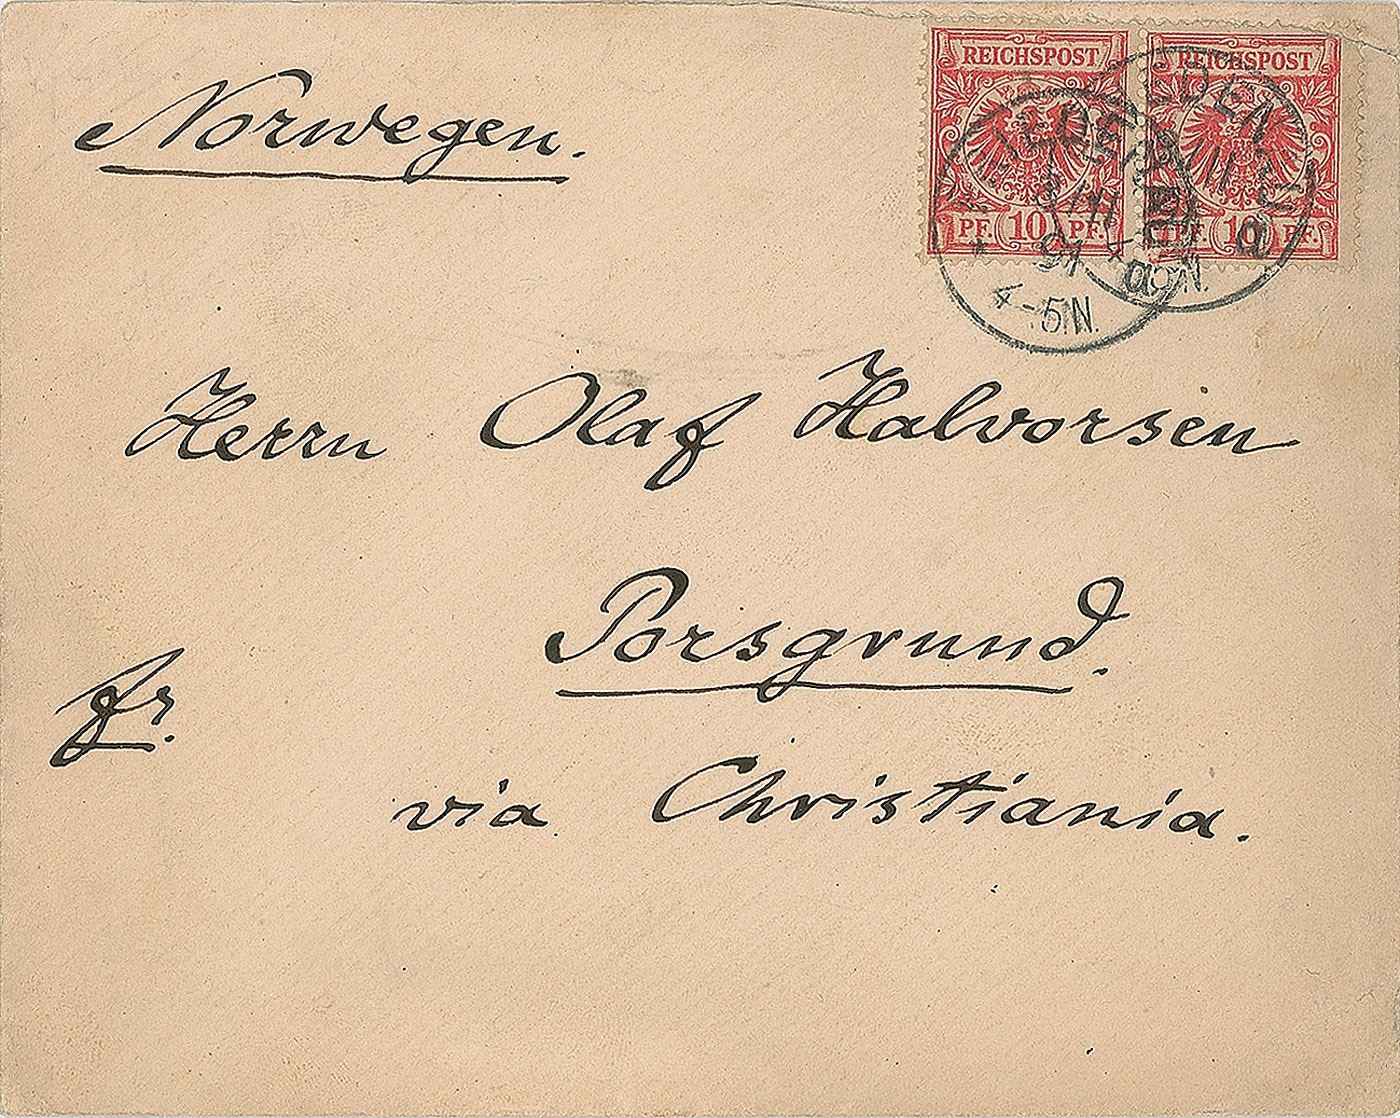 Norwegen.
REICHSPOST REICHSPOST
PF. 10 PF. PF. 10 PF.
91
4-5N.
a
Herrn Olaf Halvorsen
Porsgrund.
fr.
via Christiania.